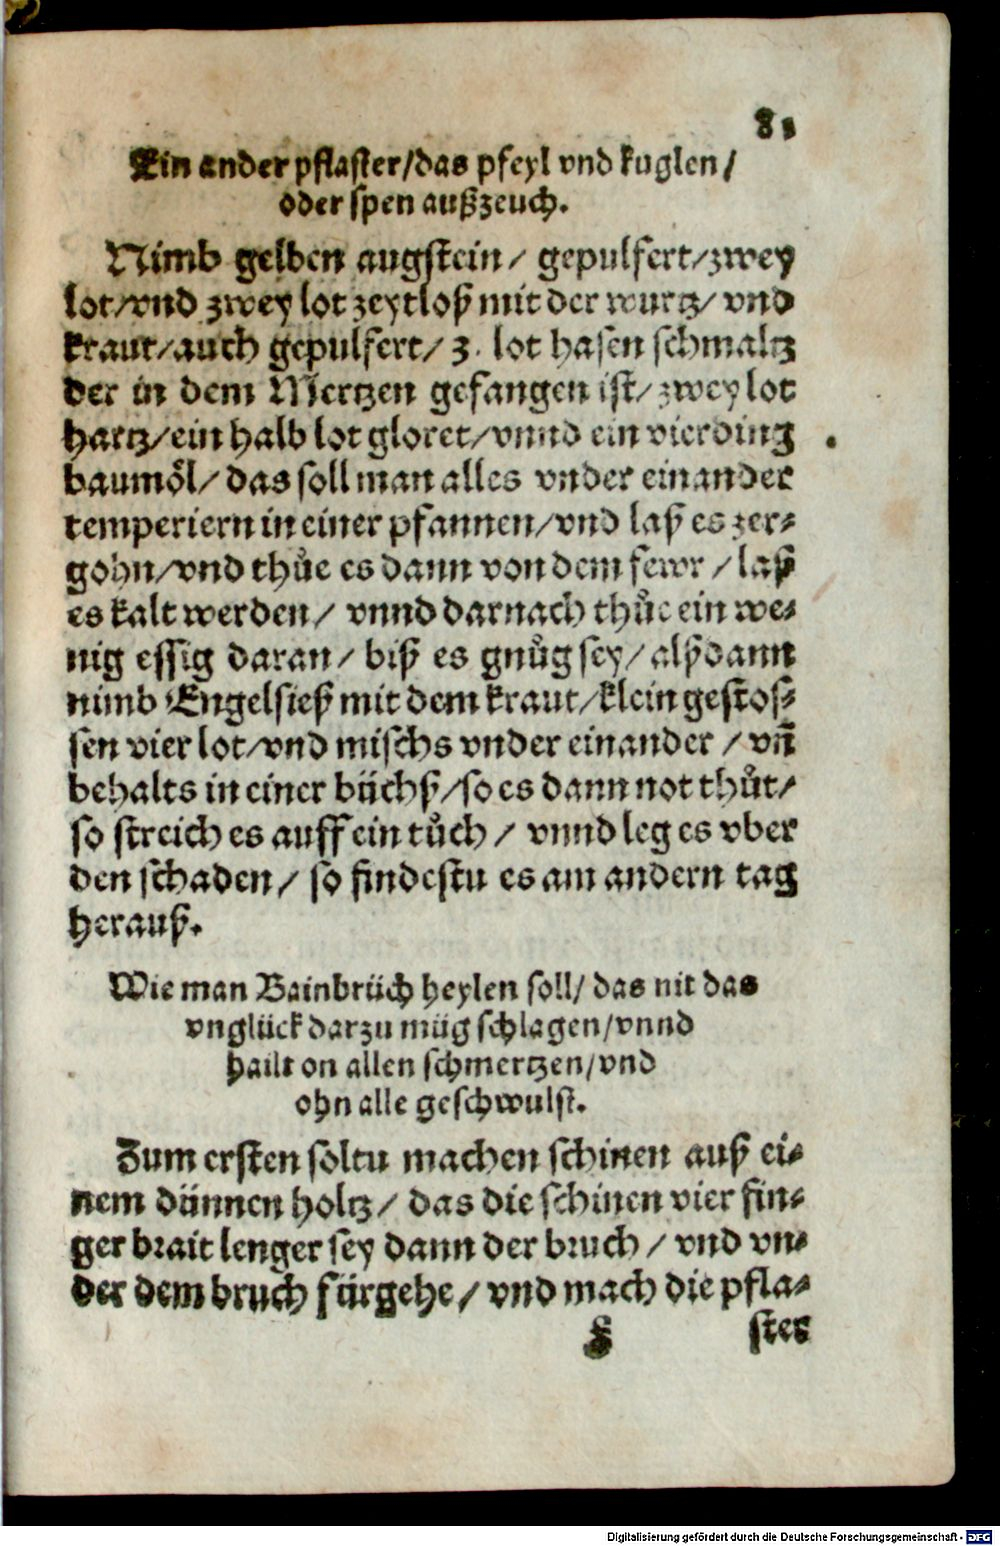 81
Ein ander pflaster/das pfeyl vnd kuglen/
oder spen außzeuch.
Nimb gelben augstein/ gepulfert/zwey
lot/vnd zwey lot zeytloß mit der wurtz/ vnd
kraut/auch gepulfert/ 3. lot hasen schmaltz
der in dem Mertzen gefangen ist/ zwey lot
hartz/ein halb lot gloret/vnnd ein vierding
baumöl/ das soll man alles vnder einander
temperiern in einer pfannen/vnd laß es zer-
gohn/vnd thůe es dann von dem fewr / laß
es kalt werden/ vnnd darnach thůe ein we-
nig essig daran/ biß es gnůg sey/ alßdann
nimb Engelsieß mit dem kraut/klein gestos-
sen vier lot/vnd mischs vnder einander / vñ
behalts in einer büchß/so es dann not thůt/
so streich es auff ein tůch / vnnd leg es vber
den schaden/ so findestu es am andern tag
herauß.
Wie man Bainbrüch heylen soll/ das nit das
vnglück darzu müg schlagen/vnnd
hailt on allen schmertzen/vnd
ohn alle geschwulst.
Zum ersten soltu machen schinen auß ei-
nem dünnen holtz/ das die schinen vier fin-
ger brait lenger sey dann der bruch / vnd vn-
der dem bruch fürgehe/ vnd mach die pfla-
L ster
Digitalisierung gefördert durch die Deutsche Forschungsgemeinschaft - DFG